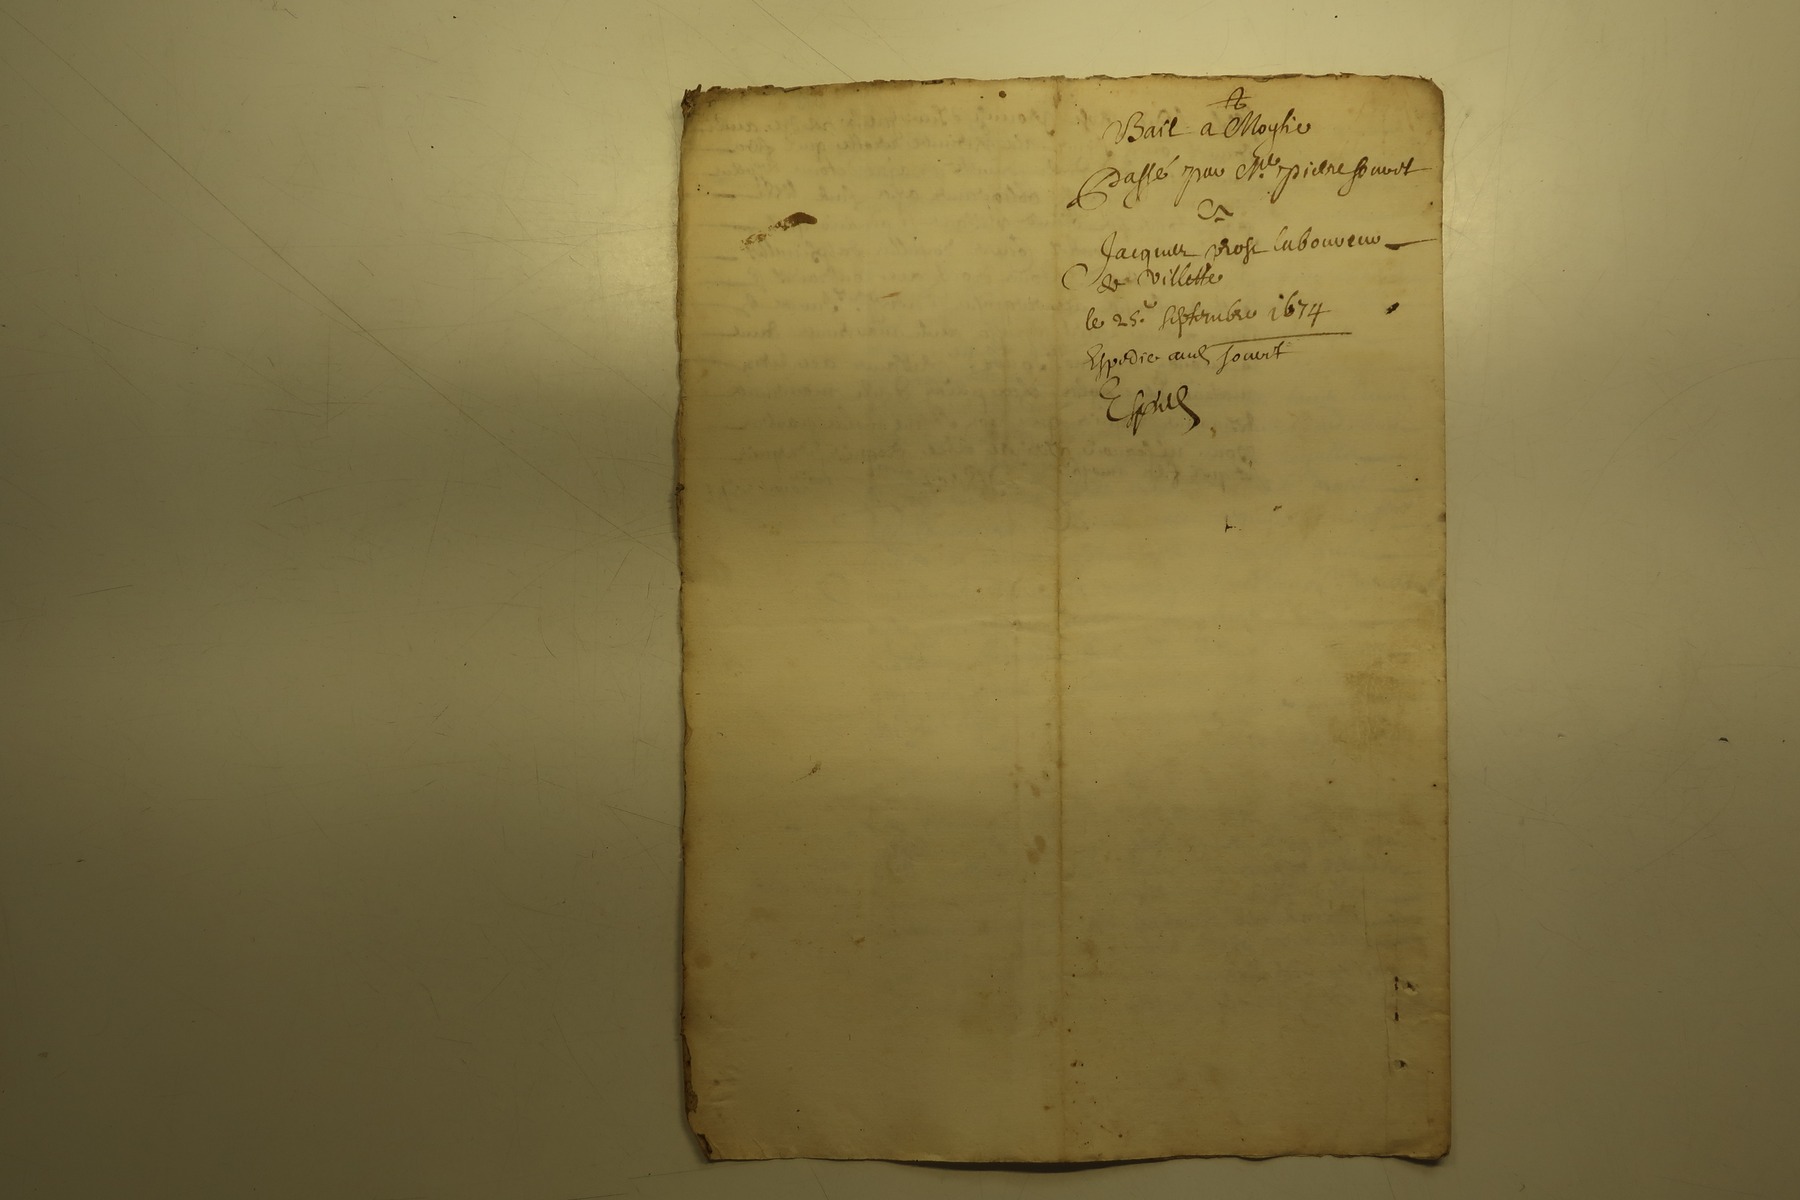 Bail a Moytie
Passé par Mre pierre Jouvet
Et
Jacques prost laboureur
de Villette
le 25e septembre 1674
Expedie aud Jouvet
Expdl